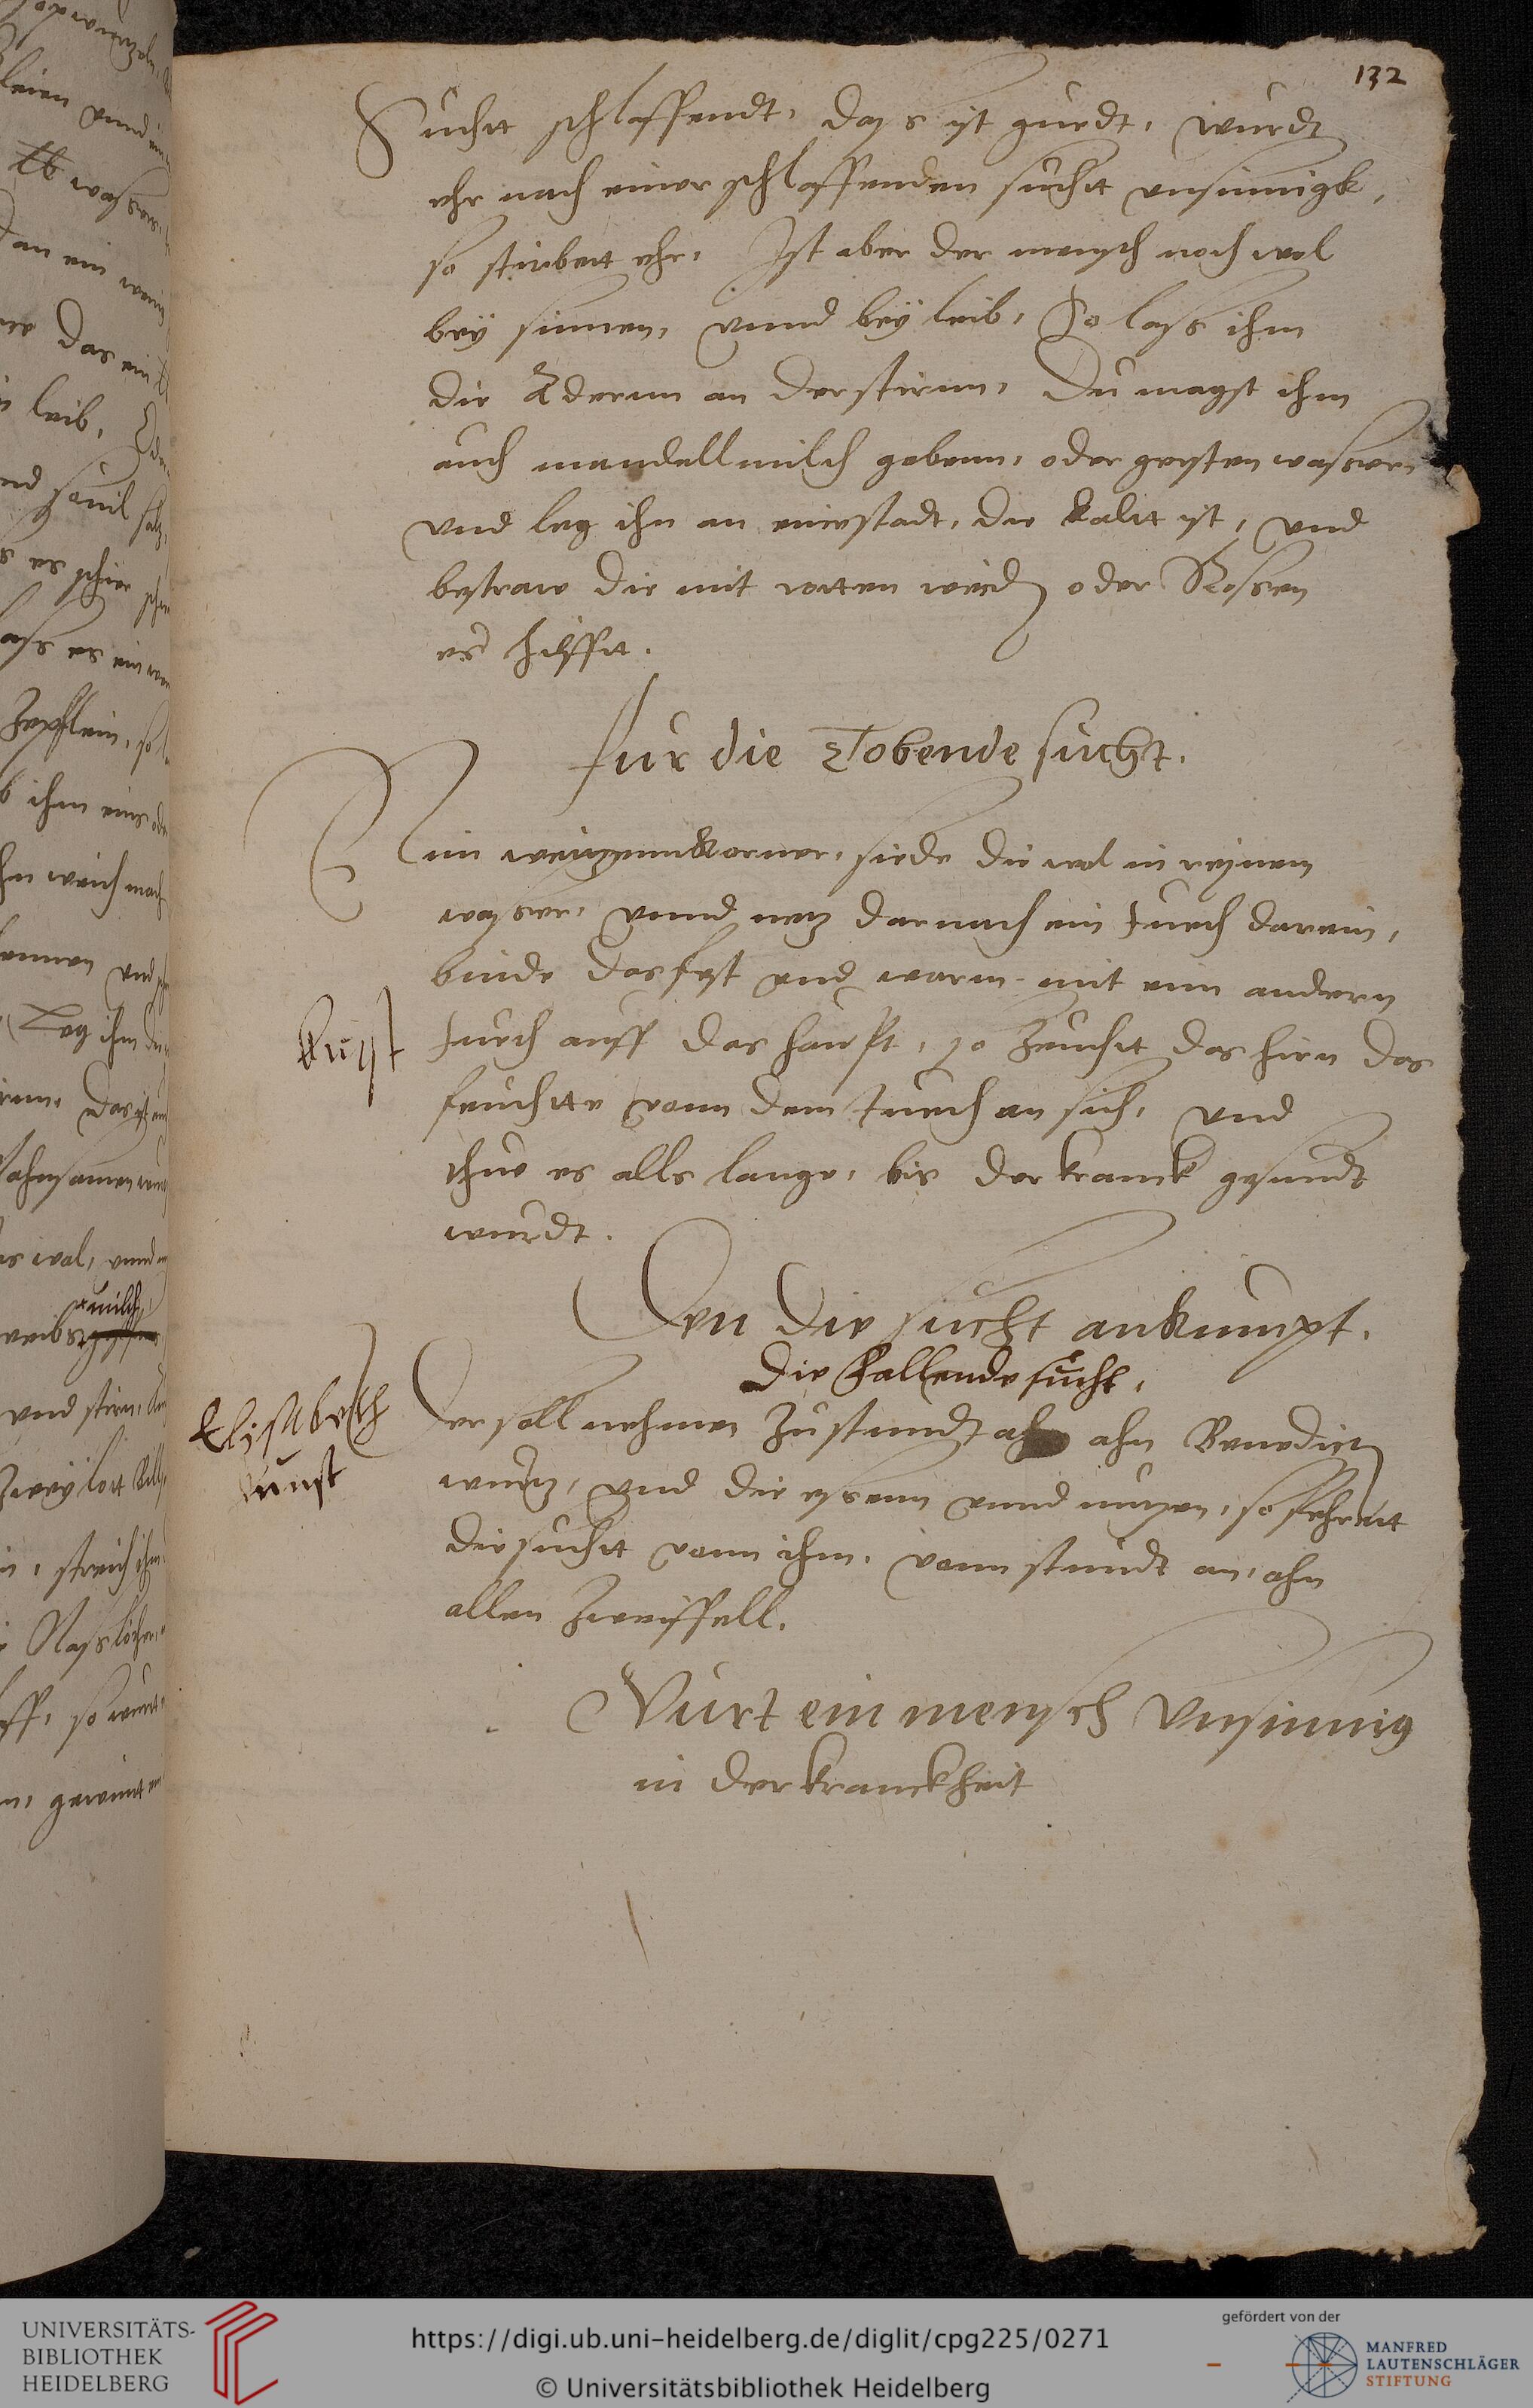 132
Sucht schlaffendt, dass ist guedt, wurdt
ehr nach einer schlaffenden sucht unsinnigk,
so stirbett ehr, Ist aber der mensch noch wol
bey sinnen, vnnd bey leib, So lass ihm
die Adernn an der stirnn, Du magst ihm
auch mandellmilch gebenn, oder gersten wasser,
vnd leg ihn an eine stadt, die kaltt ist, vnd
bestraw die mit rotten oder Rossen
es hilfft.
fur die Tobende sucht.
Nim weitzennkorner, siede die wol in reinem
wasser, vnnd netz darnach ein tuech darein,
binde das fest vnd warm mit eim andern
tuech auff das haupt, so zeucht das hirn das
feuchtte vonn dem tuech an sich, vnd
thue es alls lange, bis der kranck gesundt
wurdt.
Kunst
Wen die sucht ankumpt.
die Fallende sucht,
Elisabeth
kunst
Der soll nehmen zu stundt ahn Benedict
wurtz, vnd die essenn vnnd nutzen, so fehrett
die sucht vonn ihm, vonn stundt an, ahn
allen zweiffell.
Wurt ein mensch vnsinnig
in der kranckheit
UNIVERSITÄTS-
BIBLIOTHEK
HEIDELBERG
https://digi.ub.uni-heidelberg.de/diglit/cpg225/0271
© Universitätsbibliothek Heidelberg
gefördert von der
MANFRED
LAUTENSCHLÄGER
STIFTUNG